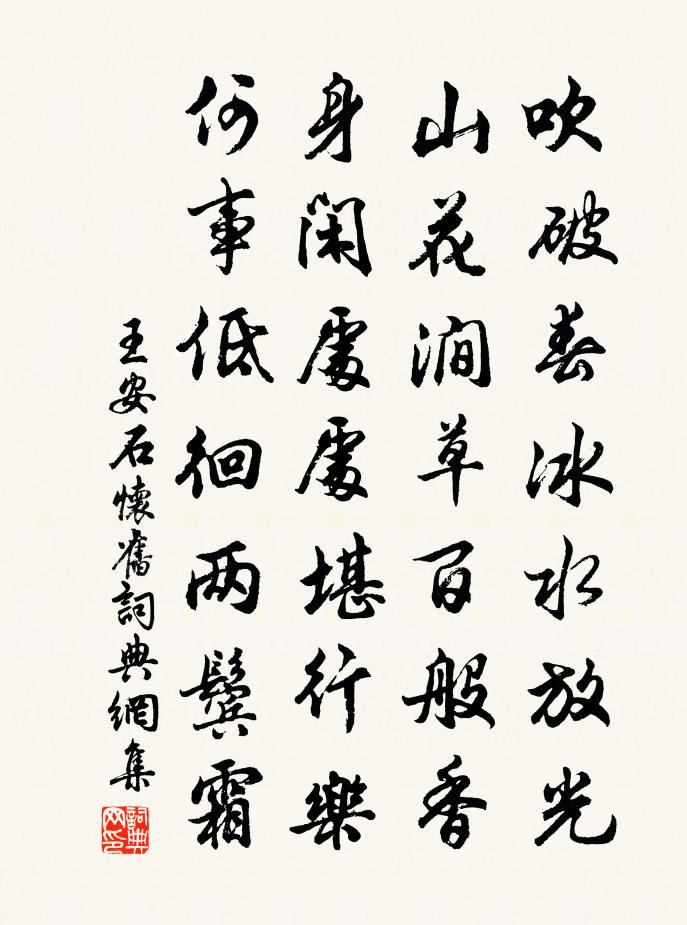 吹破春冰水放光
山花澗草百般香
身閑處處堪行樂
何事低徊两鬓霜
王安石懷舊詞典網集
詞典网印